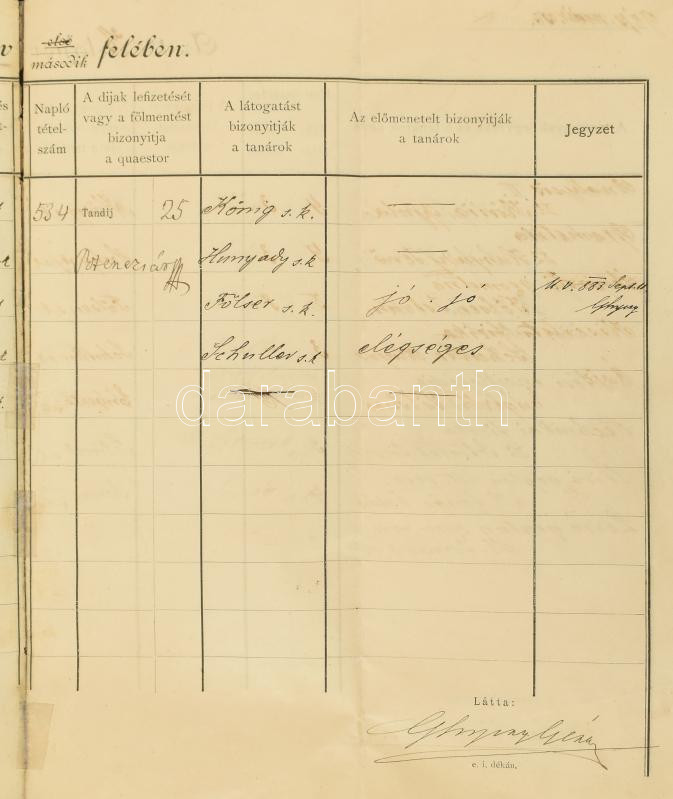 első
második felében.
Napló
tétel-
szám
A dijak lefizetését
vagy a fölmentést
bizonyitja
a quaestor
A látogatást
bizonyitják
a tanárok
Az előmenetelt bizonyitják
a tanárok
Jegyzet
534 Tandij 25 König s. k. —
Hunyady s. k —
Fölser s. k. jó . jó
Schuller s. k elégséges
darabanth
Látta:
e. i. dékán.